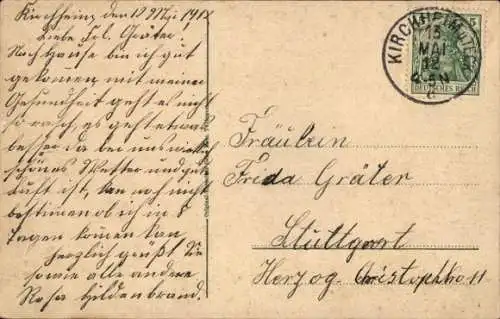 Kirchheim, den 13 Mai 1912
Liebe Frl. Gräter.
Nach Hause bin ich gut
gekommen mit meiner
Gesundheit geht es nicht
so rasch, es geht etwas
besser da bei uns
schönes Wetter und gute
Luft ist, kan noch nicht
bestimen ob ich in 8
Tagen komen kan
herzlich grüßt Sie
sowie alle andere
Rosa Hildenbrand.
KIRCHHEIM u. TECK
13
MAI
12
4-5N
5
DEUTSCHES REICH
Fräulein
Frida Gräter
Stuttgart
Herzog Christophh 11